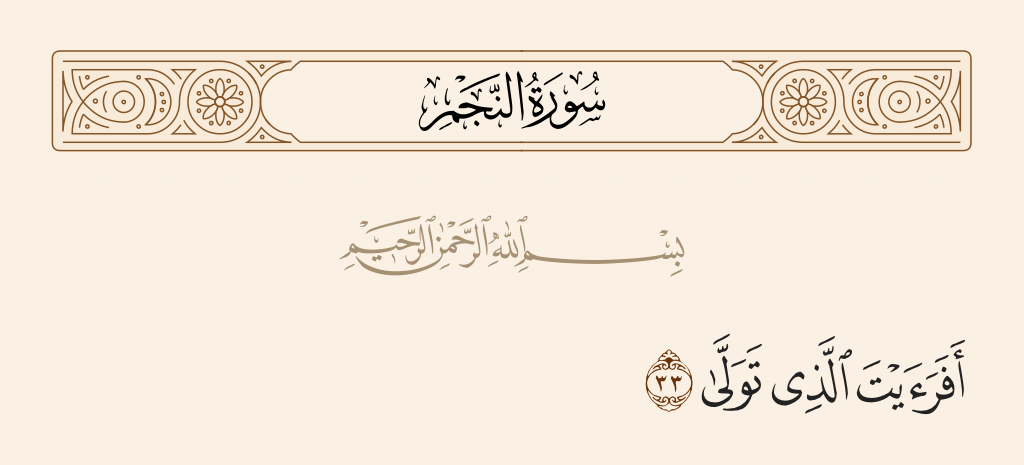 سُورَةُ النَّجْمِ
بِسْمِ ٱللَّهِ ٱلرَّحْمَٰنِ ٱلرَّحِيمِ
أَفَرَءَيْتَ ٱلَّذِى تَوَلَّىٰ ٣٣